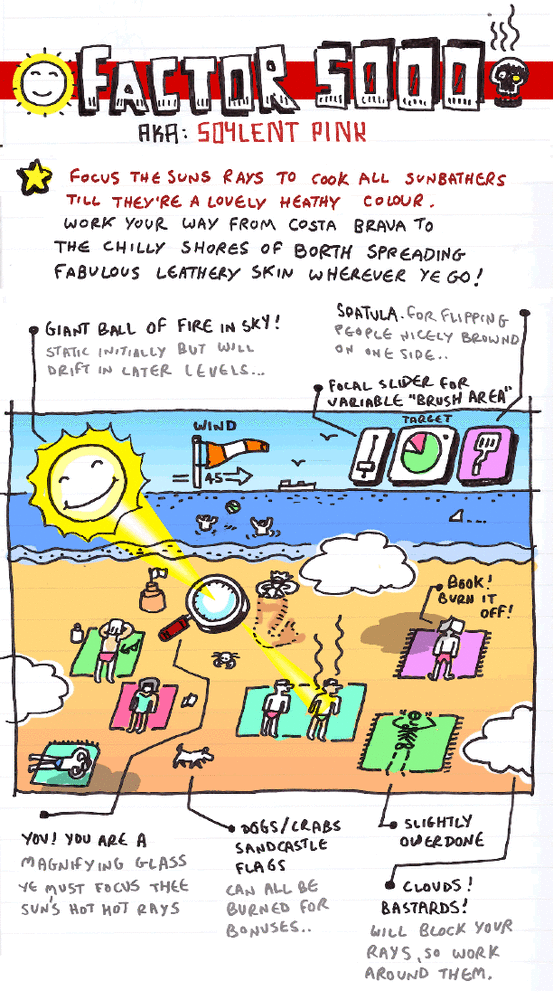 FACTOR 5000
AKA: SOYLENT PINK
FOCUS THE SUNS RAYS TO COOK ALL SUNBATHERS
TILL THEY'RE A LOVELY HEATHY COLOUR.
WORK YOUR WAY FROM COSTA BRAVA TO
THE CHILLY SHORES OF BORTH SPREADING
FABULOUS LEATHERY SKIN WHEREVER YE GO!
GIANT BALL OF FIRE IN SKY!
STATIC INITIALLY BUT WILL
DRIFT IN LATER LEVELS...
SPATULA. FOR FLIPPING
PEOPLE NICELY BROWND
ON ONE SIDE..
FOCAL SLIDER FOR
VARIABLE "BRUSH AREA"
WIND
45
TARGET
BOOK!
BURN IT
OFF!
YOU! YOU ARE A
MAGNIFYING GLASS
YE MUST FOCUS THEE
SUN'S HOT HOT RAYS
DOGS/CRABS
SANDCASTLE
FLAGS
CAN ALL BE
BURNED FOR
BONUSES..
SLIGHTLY
OVERDONE
CLOUDS!
BASTARDS!
WILL BLOCK YOUR
RAYS, SO WORK
AROUND THEM.